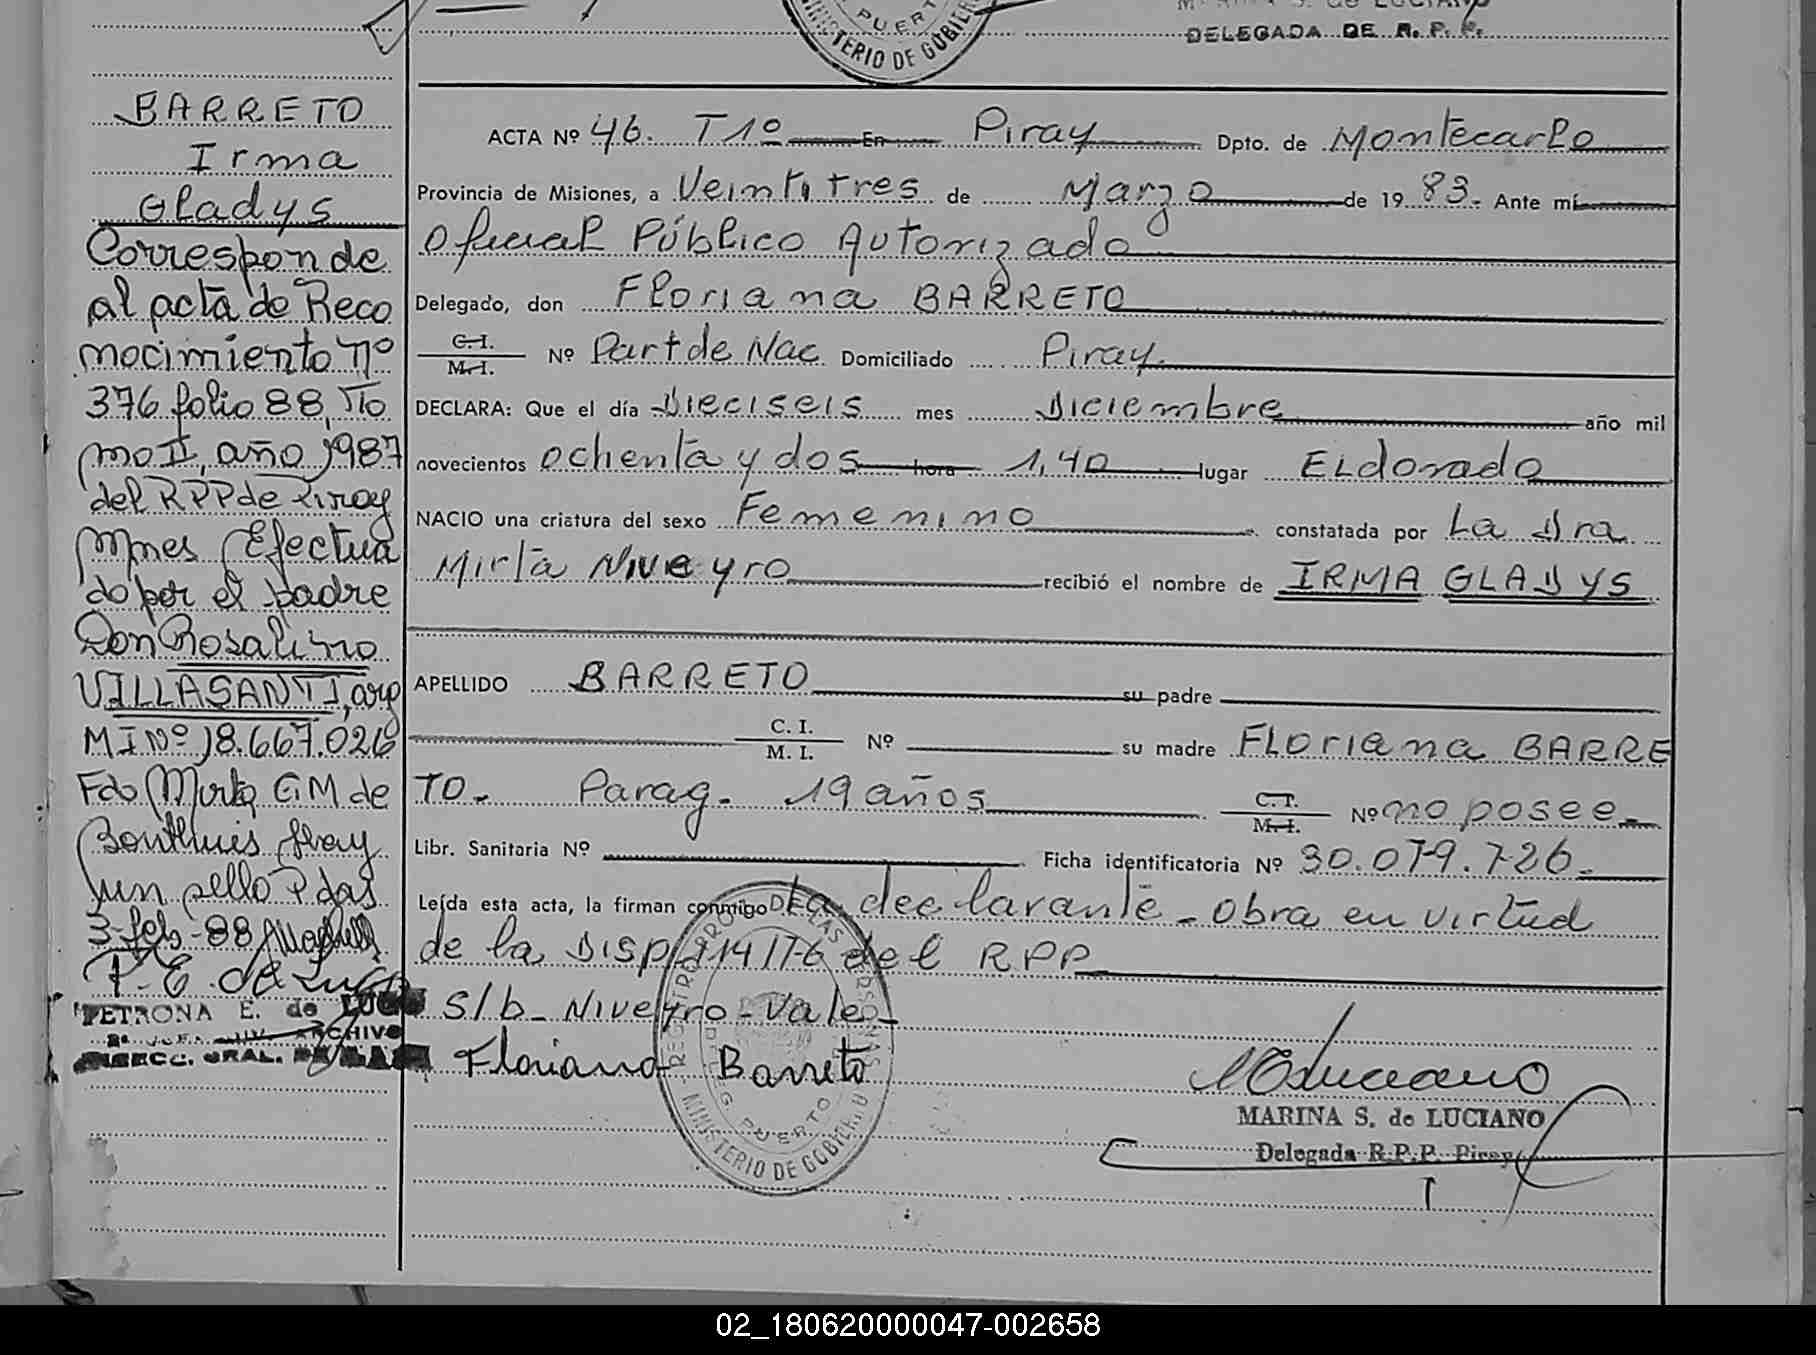 PUERTO
MINISTERIO DE GOBIERNO
DELEGADA DE R. P. P.
BARRETO
Irma
Gladys
Corresponde
al acta de Reco
nocimiento nº
376 folio 88, To
mo II, año 1987
del RPP de Piray
Mnes Efectua
do por el padre
Don Rosalino
VILLASANTI, arg
MI Nº 18.667.026
Fdo Mirta G M de
Bonthuis Hay
un sello Pdas
3-feb-88
P. E. de Lugo
PETRONA E. de LUGO
ARCHIVO
DIRECC. GRAL.
ACTA Nº 46. T1º En Piray Dpto. de Montecarlo
Provincia de Misiones, a Veintitres de Marzo de 19 83. Ante mí
Oficial Público Autorizado
Delegado, don Floriana BARRETO
C.I.
M.I. Nº Part de Nac Domiciliado Piray.
DECLARA: Que el día Dieciseis mes Diciembre año mil
novecientos ochenta y dos hora 1,40 lugar Eldorado
NACIO una criatura del sexo Femenino constatada por La Dra.
Mirta Niveyro recibió el nombre de IRMA GLADYS
APELLIDO BARRETO su padre
C. I.
M. I. Nº su madre Floriana BARRE
TO. Parag. 19 años C.I.
M.I. Nº no posee
Libr. Sanitaria Nº Ficha identificatoria Nº 30.079.726.
Leída esta acta, la firman conmigo La declarante - Obra en virtud
de la Disp 114/76 del RPP
S/b - Niveyro - Vale -
Floriana Barreto
PUERTO
MINISTERIO DE GOBIERNO
MARINA S. de LUCIANO
Delegada R.P.P. Piray
02_180620000047-002658